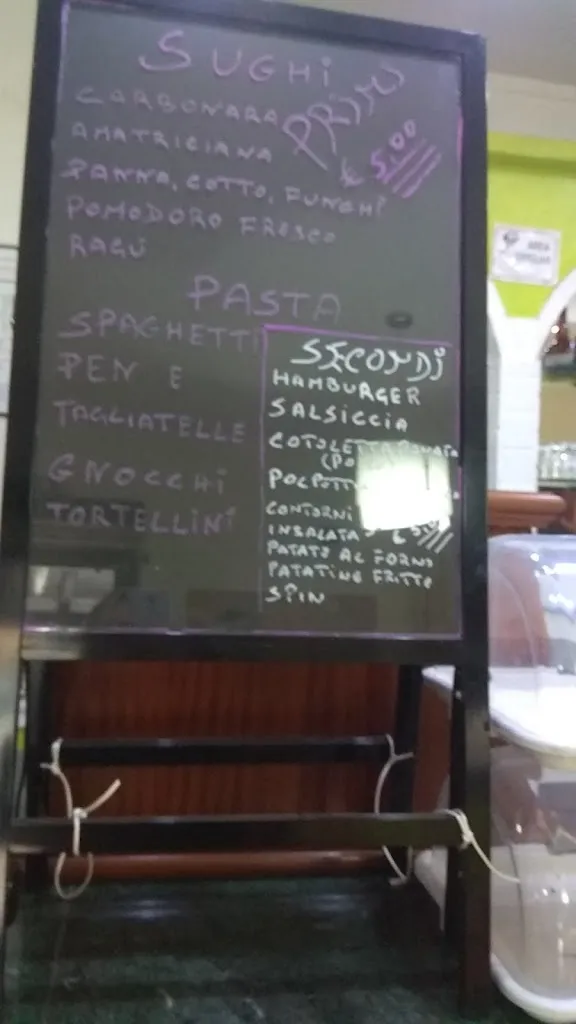 SUGHi
CARBONARA
AMATRICIANA
PANNA, COTTO, FUNGHI
POMODORO FRESCO
RAGÙ
PRIMI
€ 5.00
PASTA
SPAGHETTI
PEN E
TAGLIATELLE
GNOCCHI
TORTELLINI
SECONDi
HAMBURGER
SALSICCIA
COTOLETTA
(PO
POLPETT
CONTORNI
INSALATA
PATATE AL FORNO
PATATINE FRITTE
SPIN
AREA